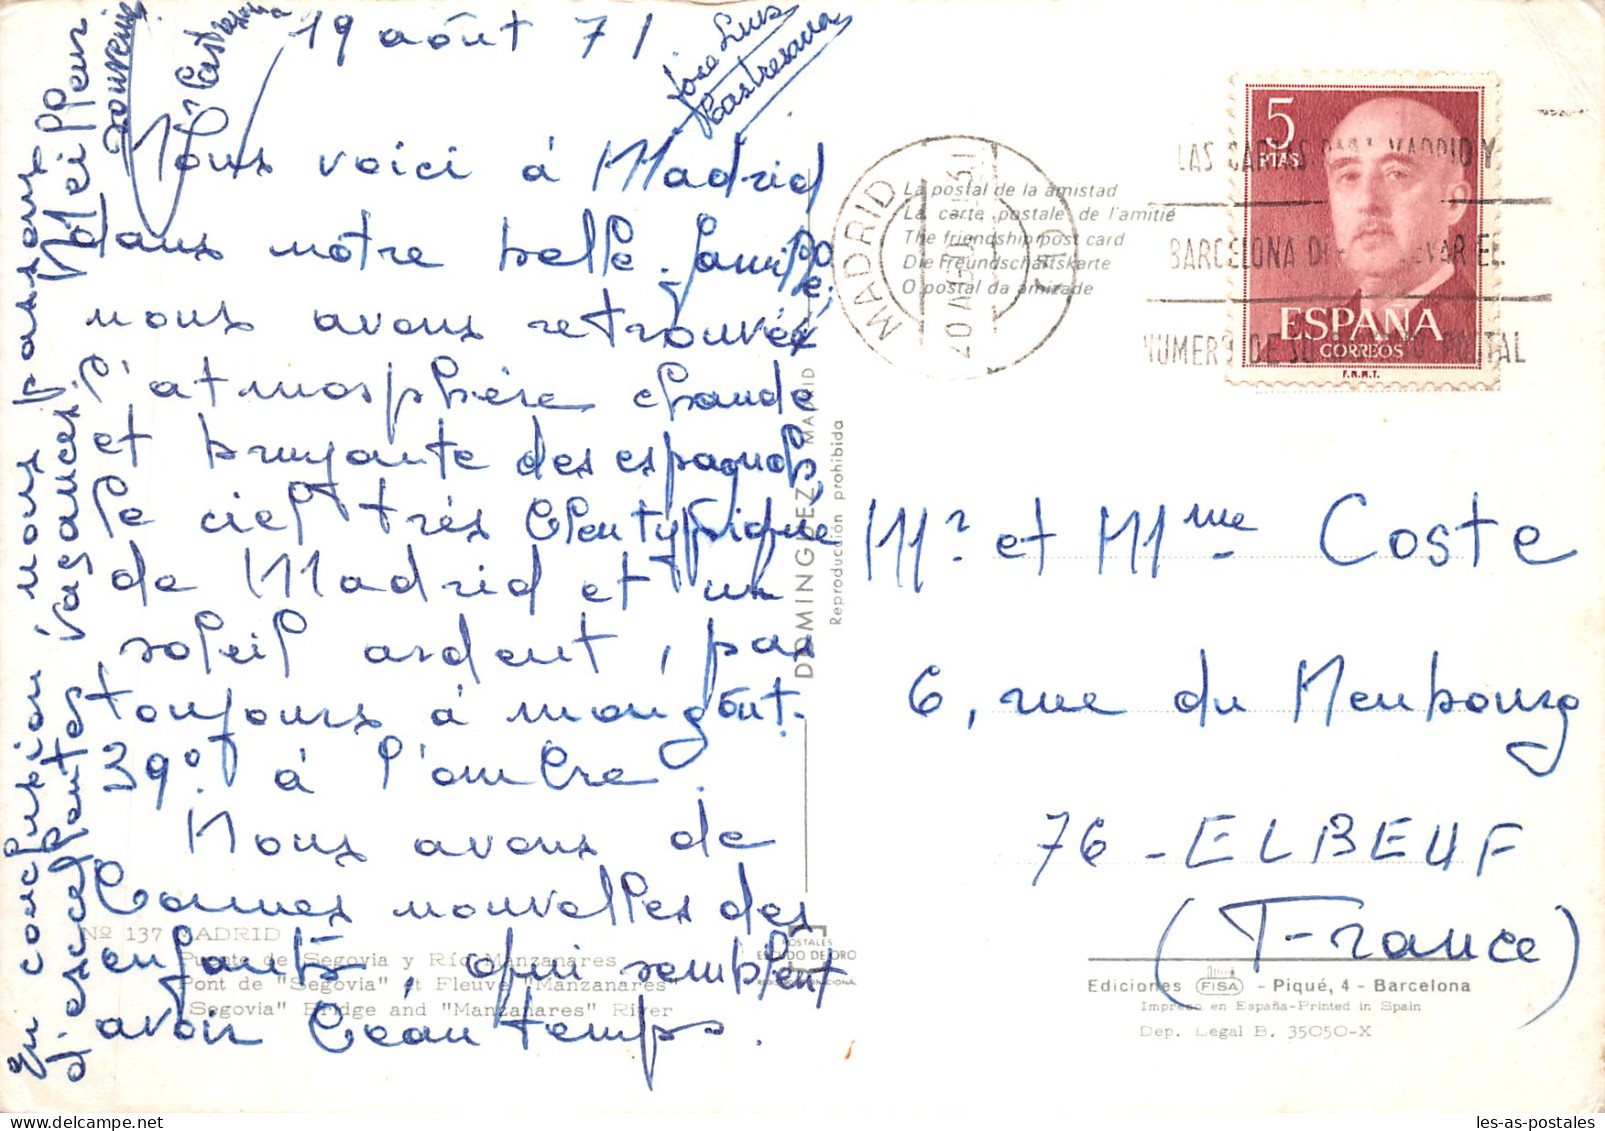 19 août 71
Nous voici à Madrid
dans notre belle-famille
nous avons retrouvé
l'atmosphère chaude
et bruyante des espagnols
le ciel très bleu typique
de Madrid et un
soleil ardent, pas
toujours à mon goût.
39° à l'ombre.
Nous avons de
bonnes nouvelles des
enfants, qui semblent
avoir beau temps.
En conclusion nous passons
d'excellentes vacances.
Meilleur
souvenir
Castresana
Jose Luis
Castresana
Nº 137 MADRID
Puente de Segovia y Río Manzanares
Pont de "Segovia" et Fleuve "Manzanares"
"Segovia" Bridge and "Manzanares" River
DOMINGUEZ - MADRID
Reproducción prohibida
POSTALES
ESCUDO DE ORO
La postal de la amistad
La carte postale de l'amitié
The friendship post card
Die Freundschaftskarte
O postal da amizade
MADRID
LAS CARTAS PARA MADRID Y
BARCELONA DEBEN LLEVAR EL
NUMERO DE SU DISTRITO POSTAL
5
PTAS
ESPAÑA
CORREOS
F.N.M.T.
Mr et Mme Coste
6, rue du Neubourg
76 - ELBEUF
(France)
Ediciones FISA - Piqué, 4 - Barcelona
Impreso en España-Printed in Spain
Dep. Legal B. 35050-X
les-as-postales